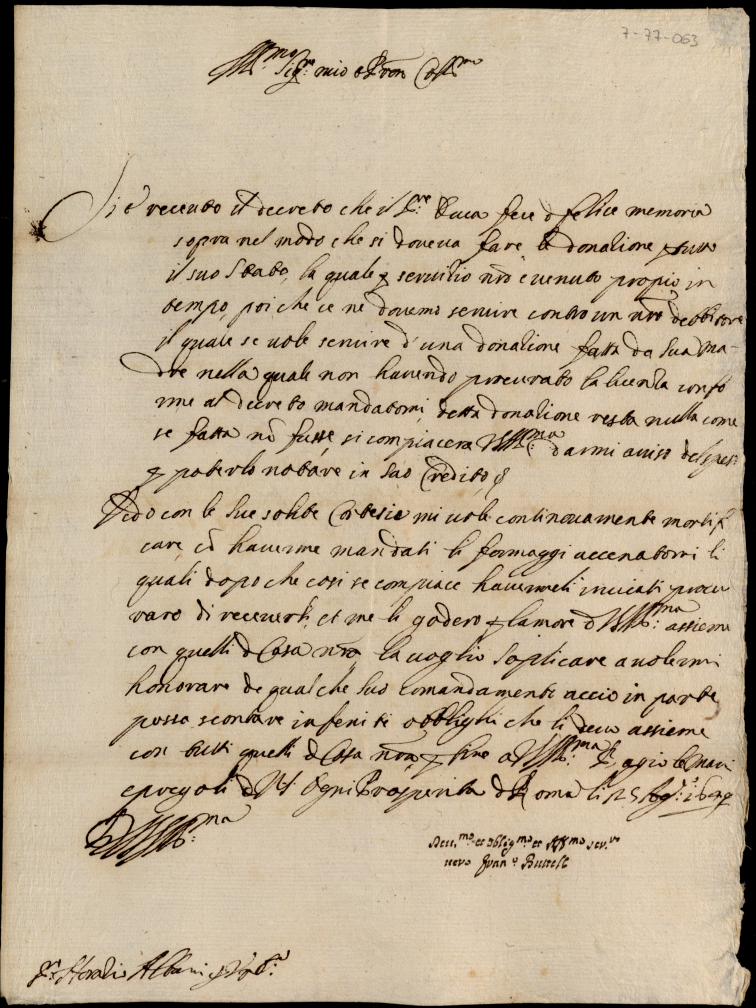 7-77-063
Ill.mo Sig.re mio e P.ron Coll.mo
Si è receuto il decreto che il S.re Duca fece di felice memoria
sopra nel modo che si doveva fare le donatione p tutto
il suo Stato, la quale p servitio nro è venuto propio in
tempo, poi che ce ne dovemo servire contro un nro debbitore
il quale se vole servire d'una donatione fatta da sua ma-
dre nella quale non havendo procurato la licentia confo
rme al decreto mandatomi, detta donatione resta nulla come
se fatta nō fusse, si compiacera V S Ill.ma darmi aviso del spes
p poterlo notare in suo Credito,
Vedo con le sue solite Cortesie mi vole continovamente mortifi
care, cō haverme mandati li formaggi accenatomi li
quali dopo che cosi se compiace havermeli inviati procu
raro di receverli, et me li godero p l'amore di V S Ill.ma assieme
con quelli di Casa nra la voglio suplicare a volermi
honorare de qualche suo comandamenti accio in parte
possa scontare infeniti obblighi che li devo assieme
con tutti quelli di Casa nra, p fine a V S Ill.ma bagio le mani
e pregoli da N S ogni Prosperità di Roma li 25 Ag.o
D V S Ill.ma
Dev.mo et obblig.mo et Aff.mo ser.re
vero Fran.o
S.r Horatio Albani